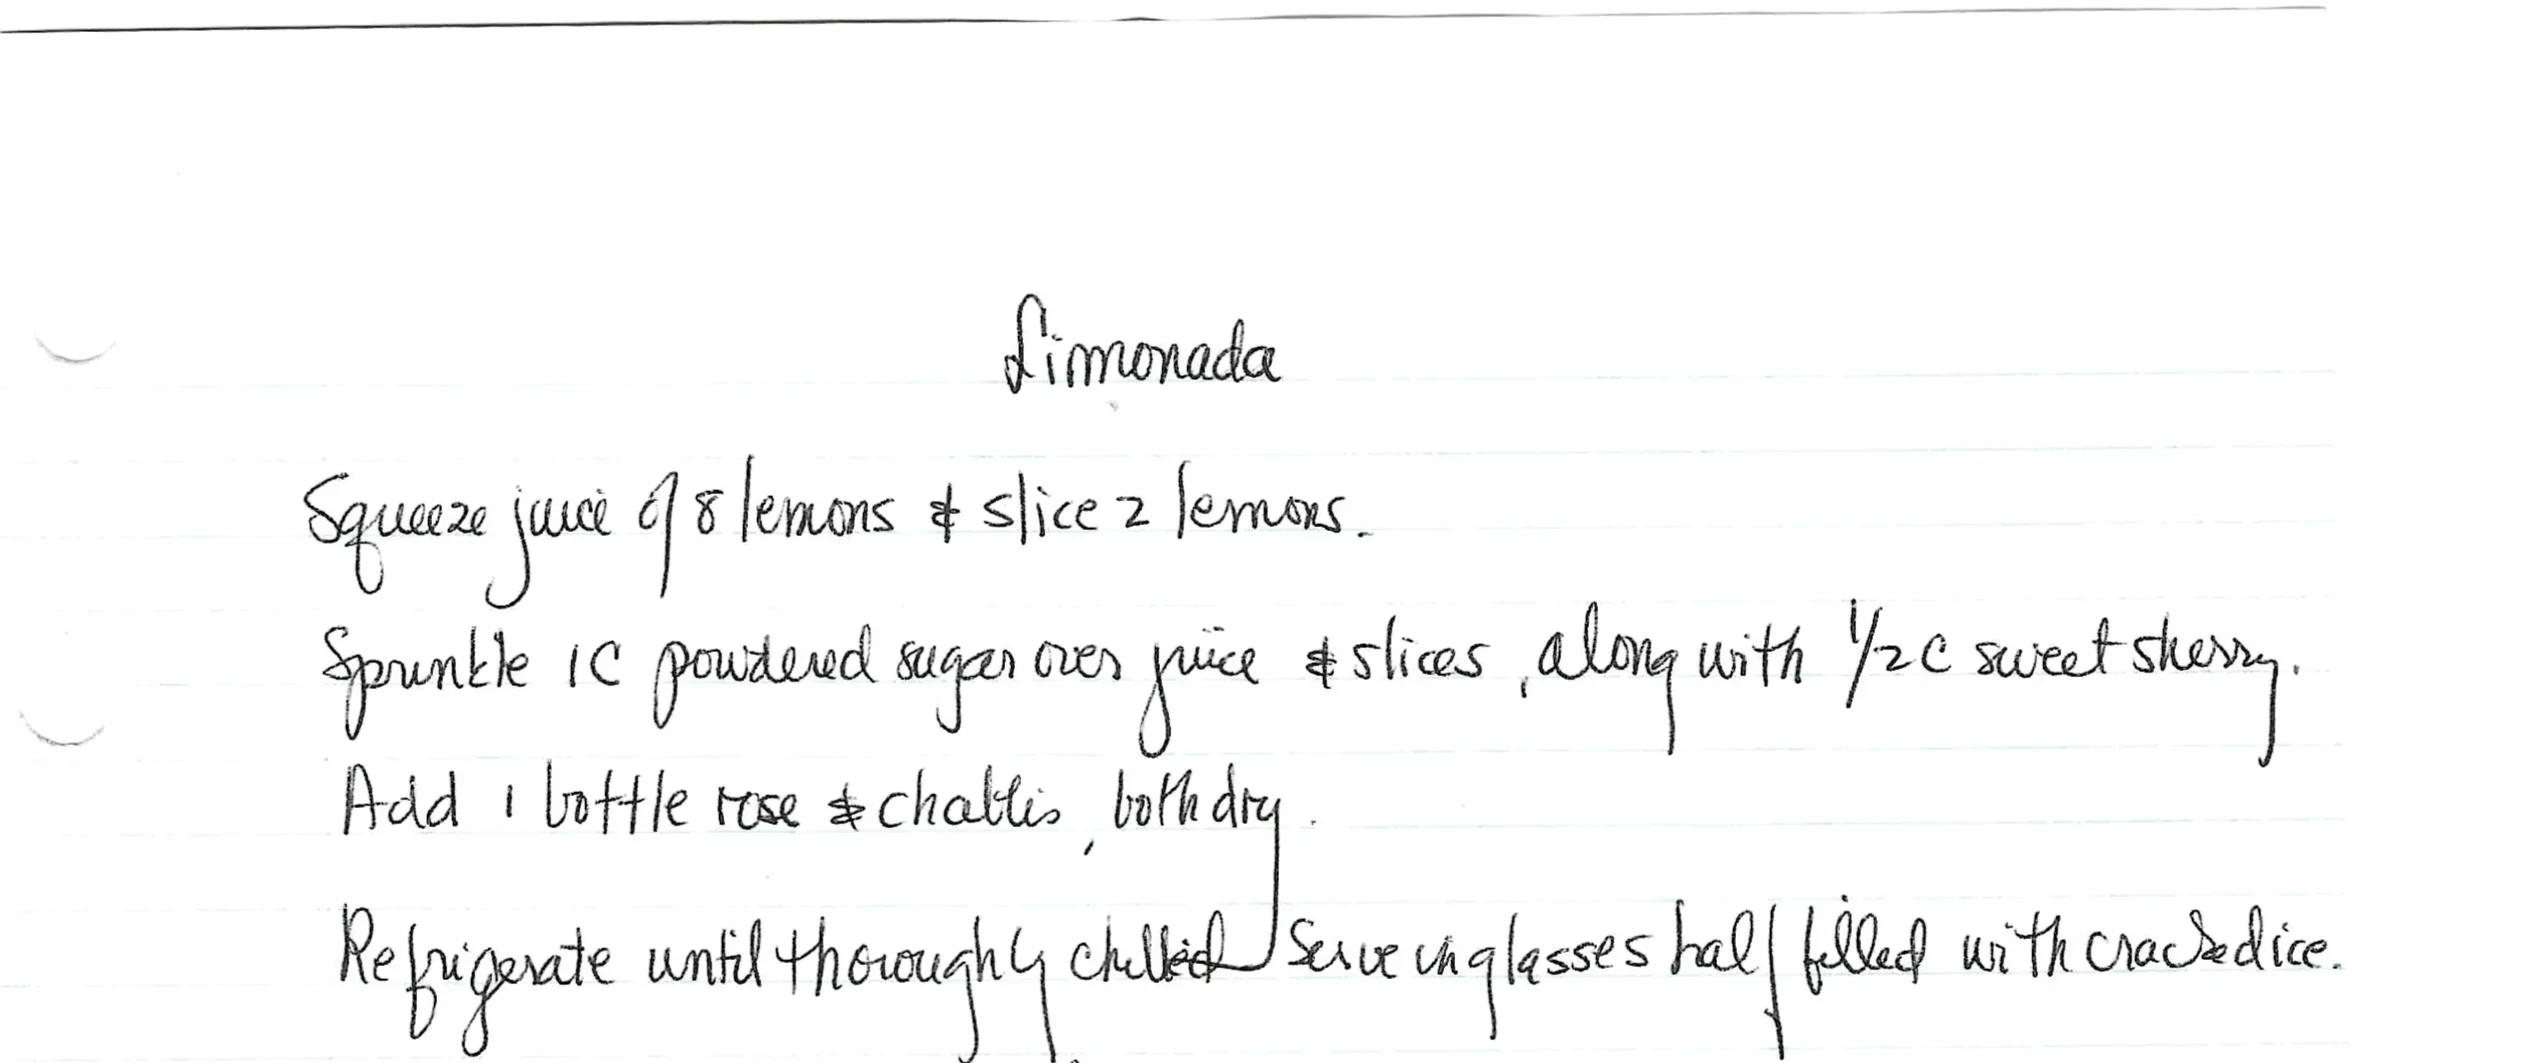 Limonada
Squeeze juice of 8 lemons & slice 2 lemons.
Sprinkle 1C powdered sugar over juice & slices, along with 1/2 C sweet sherry.
Add 1 bottle rose & chablis, both dry.
Refrigerate until thoroughly chilled Serve in glasses half filled with cracked ice.